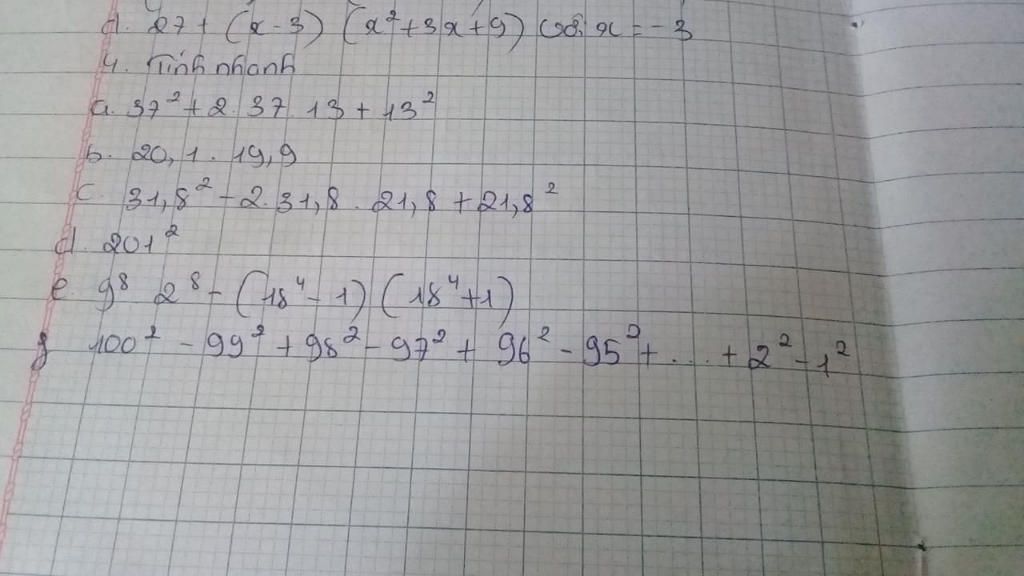 d. 27 + (x - 3) (x² + 3x + 9) với x = -3
4. Tính nhanh
a. 37² + 2. 37. 13 + 13²
b. 20,1 . 19,9
c. 31,8² - 2. 31,8 . 21,8 + 21,8²
d. 201²
e. 9⁸ 2⁸ - (18⁴ - 1) (18⁴ + 1)
g 100² - 99² + 98² - 97² + 96² - 95² + ... + 2² - 1²